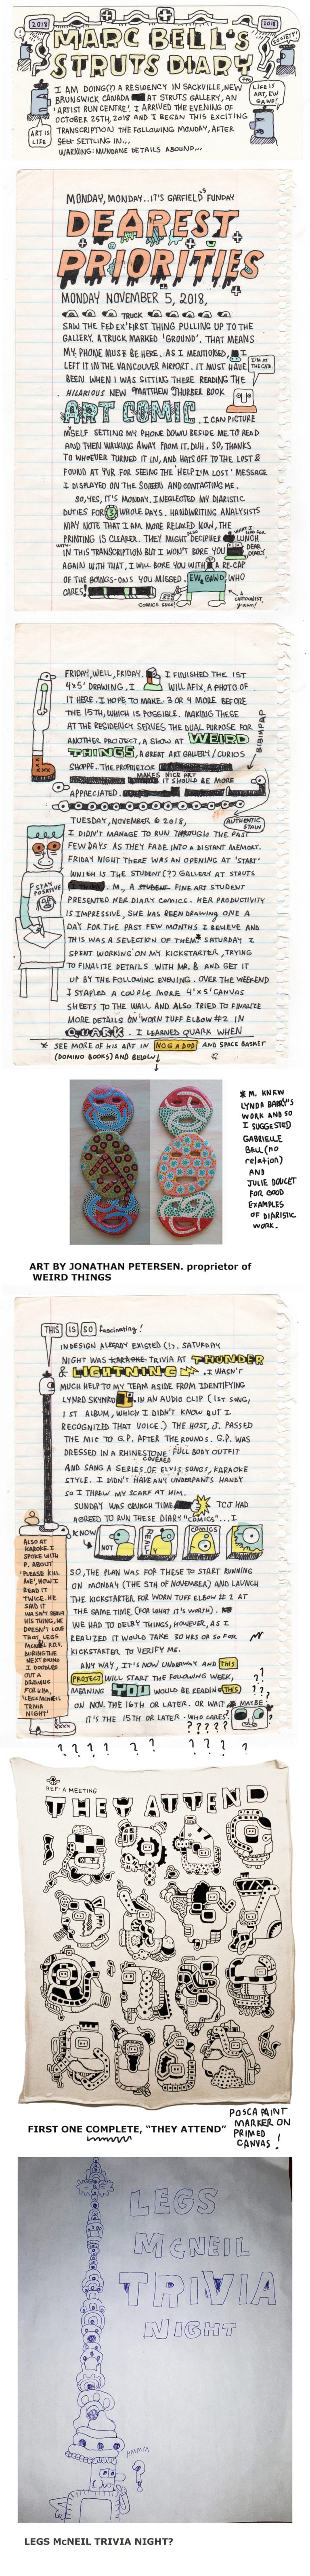 2018
2018
SOCIETY!
MARC BELL'S
STRUTS DIARY
I AM DOING(?) A RESIDENCY IN SACKVILLE, NEW
BRUNSWICK CANADA AT STRUTS GALLERY, AN
ARTIST RUN CENTRE. I ARRIVED THE EVENING OF
OCTOBER 25TH, 2018 AND I BEGAN THIS EXCITING
TRANSCRIPTION THE FOLLOWING MONDAY, AFTER
SETTLING IN...
WARNING: MUNDANE DETAILS ABOUND...
ART IS
LIFE
LIFE IS
ART, EW
GAWD!
MONDAY, MONDAY...IT'S GARFIELD'S FUNDAY
DEAREST
PRIORITIES
MONDAY NOVEMBER 5, 2018,
TRUCK
SAW THE FED EX FIRST THING PULLING UP TO THE
GALLERY. A TRUCK MARKED 'GROUND'. THAT MEANS
MY PHONE MUST BE HERE. AS I MENTIONED, I
LEFT IT IN THE VANCOUVER AIRPORT. IT MUST HAVE
BEEN WHEN I WAS SITTING THERE READING THE
HILARIOUS NEW MATTHEW THURBER BOOK
I'M AT
THE CAFE.
ART COMIC. I CAN PICTURE
MYSELF SETTING MY PHONE DOWN BESIDE ME TO READ
AND THEN WALKING AWAY FROM IT, DUH. SO, THANKS
TO WHOEVER TURNED IT IN, AND HATS OFF TO THE LOST &
FOUND AT YVR FOR SEEING THE 'HELP I'M LOST' MESSAGE
I DISPLAYED ON THE SCREEN AND CONTACTING ME.
SO, YES, IT'S MONDAY. I NEGLECTED MY DIARISTIC
DUTIES FOR 3 WHOLE DAYS. HANDWRITING ANALYSISTS
MAY NOTE THAT I AM MORE RELAXED NOW, THE
PRINTING IS CLEARER. THEY MIGHT ALSO DECIPHER WHAT I HAD FOR LUNCH
IN THIS TRANSCRIPTION BUT I WON'T BORE YOU WITH
DEAR
DIARY.
AGAIN WITH THAT, I WILL BORE YOU WITH A RE-CAP
OF THE GOINGS-ONS YOU MISSED. EW & GAWD WHO
CARES!
COMICS SUCK!
A
CARTOONIST,
FRIDAY, WELL, FRIDAY. I FINISHED THE 1ST
4X5' DRAWING. I WILL AFIX A PHOTO OF
IT HERE. I HOPE TO MAKE 3 OR 4 MORE BEFORE
THE 15TH, WHICH IS POSSIBLE. MAKING THESE
AT THE RESIDENCY SERVES THE DUAL PURPOSE FOR
ANOTHER PROJECT, A SHOW AT WEIRD
THINGS, A GREAT ART GALLERY/CURIOS
SHOPPE. THE PROPRIETOR
MAKES NICE ART
IT SHOULD BE MORE
APPRECIATED.
BIBIMPAP
AUTHENTIC
STAIN
TUESDAY, NOVEMBER 6 2018,
I DIDN'T MANAGE TO RUN THROUGH THE PAST
FEW DAYS AS THEY FADE INTO A DISTANT MEMORY.
FRIDAY NIGHT THERE WAS AN OPENING AT 'START'
WHICH IS THE STUDENT(??) GALLERY AT STRUTS
M., A FINE ART STUDENT
STAY
POSITIVE
PRESENTED HER DIARY COMICS. HER PRODUCTIVITY
IS IMPRESSIVE, SHE HAS BEEN DRAWING ONE A
DAY FOR THE PAST FEW MONTHS I BELIEVE AND
THIS WAS A SELECTION OF THEM* SATURDAY I
SPENT WORKING ON MY KICKSTARTER, TRYING
TO FINALIZE DETAILS WITH MR. B AND GET IT
UP BY THE FOLLOWING EVENING. OVER THE WEEKEND
I STAPLED A COUPLE MORE 4'X5' CANVAS
SHEETS TO THE WALL AND ALSO TRIED TO FINALIZE
MORE DETAILS ON 'WORN TUFF ELBOW #2 IN
QUARK. I LEARNED QUARK WHEN
* SEE MORE OF HIS ART IN NOG A DOD AND SPACE BASKET
(DOMINO BOOKS) AND BELOW↓
*M. KNEW
LYNDA BARRY'S
WORK AND SO
I SUGGESTED
GABRIELLE
BELL (NO
RELATION)
AND
JULIE DOUCET
FOR GOOD
EXAMPLES
OF DIARISTIC
WORK.
ART BY JONATHAN PETERSEN. proprietor of
WEIRD THINGS
THIS IS SO fascinating!
INDESIGN ALREADY EXISTED (!). SATURDAY
NIGHT WAS KARAOKE TRIVIA AT THUNDER
& LIGHTNING. I WASN'T
MUCH HELP TO MY TEAM ASIDE FROM IDENTIFYING
LYNRD SKYNRD IN AN AUDIO CLIP (1ST SONG,
1ST ALBUM, WHICH I DIDN'T KNOW BUT I
RECOGNIZED THAT VOICE.) THE HOST, P. PASSED
THE MIC TO G.P. AFTER THE ROUNDS. G.P. WAS
DRESSED IN A RHINESTONE COVERED FULL BODY OUTFIT
AND SANG A SERIES OF ELVIS SONGS, KARAOKE
STYLE. I DIDN'T HAVE ANY UNDERPANTS HANDY
SO I THREW MY SCARF AT HIM.
SUNDAY WAS CRUNCH TIME TCJ HAD
AGREED TO RUN THESE DIARY "COMICS"...I
KNOW
NOT
REALLY
COMICS
ALSO AT
KAROKE I
SPOKE WITH
P. ABOUT
'PLEASE KILL
ME', HOW I
READ IT
TWICE. HE
SAID IT
WASN'T REALLY
HIS THING, HE
DOESN'T LOVE
THAT LEGS
MCNEIL P.O.V.
DURING THE
NEXT ROUND
I DOODLED
OUT A
DRAWING
FOR HIM,
'LEGS MCNEIL
TRIVIA
NIGHT'
SO, THE PLAN WAS FOR THESE TO START RUNNING
ON MONDAY (THE 5TH OF NOVEMBER) AND LAUNCH
THE KICKSTARTER FOR WORN TUFF ELBOW # 2 AT
THE SAME TIME (FOR WHAT IT'S WORTH).
WE HAD TO DELAY THINGS, HOWEVER, AS I
REALIZED IT WOULD TAKE 30 HRS OR SO FOR
KICKSTARTER TO VERIFY ME.
ANY WAY, IT IS NOW UNDERWAY AND THIS
PROJECT WILL START THE FOLLOWING WEEK,
MEANING YOU WOULD BE READING THIS
ON NOV. THE 16TH OR LATER. OR WAIT, MAYBE
IT'S THE 15TH OR LATER. WHO CARES?
? ? ? ?
? ? ? ? ? ? ? ? ? ?
REF: A MEETING
THEY ATTEND
FIRST ONE COMPLETE, "THEY ATTEND"
POSCA PAINT
MARKER ON
PRIMED
CANVAS!
LEGS
MCNEIL
TRIVIA
NIGHT
HMMM
?
LEGS McNEIL TRIVIA NIGHT?